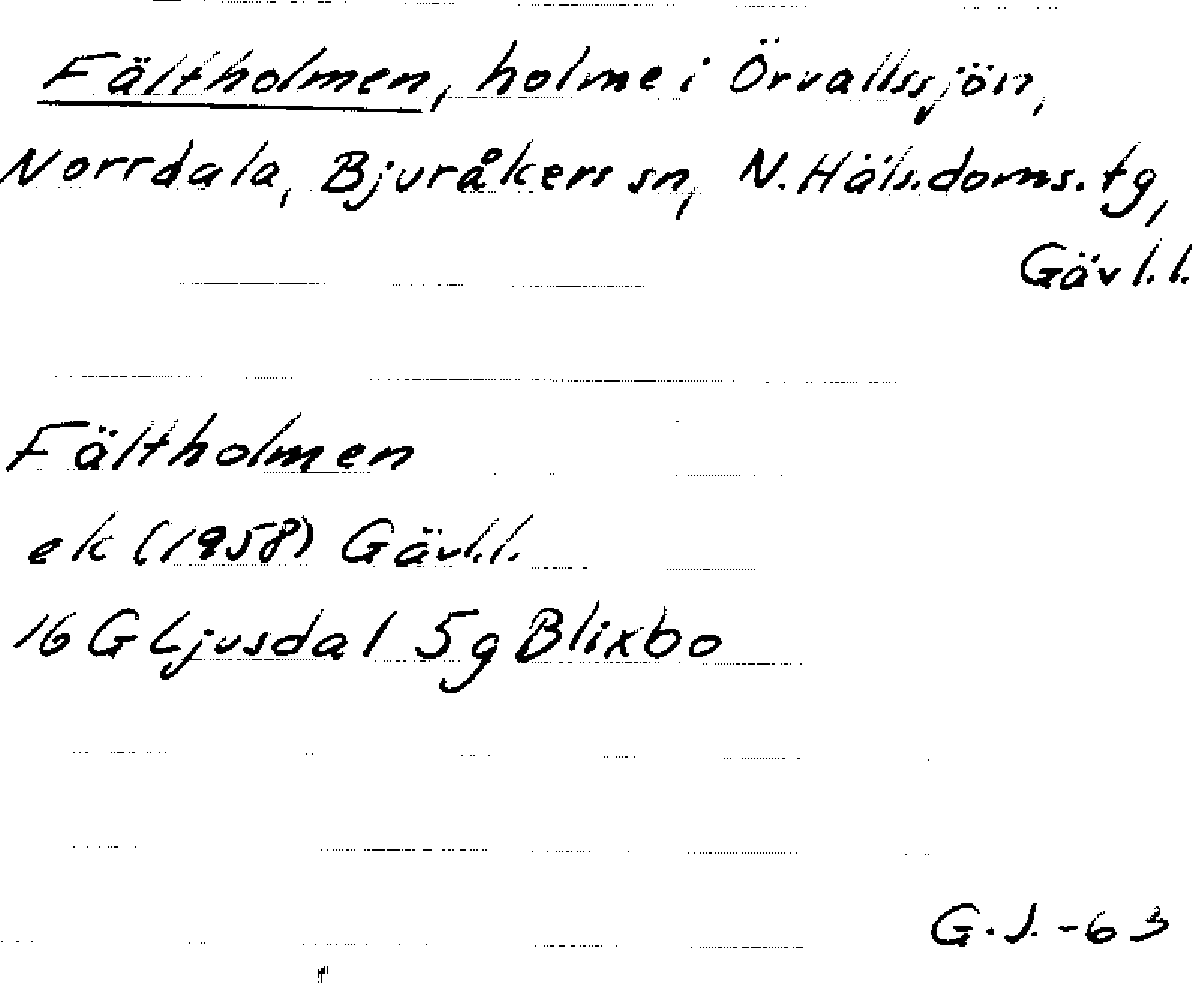 Fältholmen, holme i Örvallssjön,
Norrdala, Bjuråkers sn, N. Häls. doms. tg,
Gävl. l.
Fältholmen
ek (1958) Gävl. l.
16 G Ljusdal 5 g Blixbo
G. J. -63